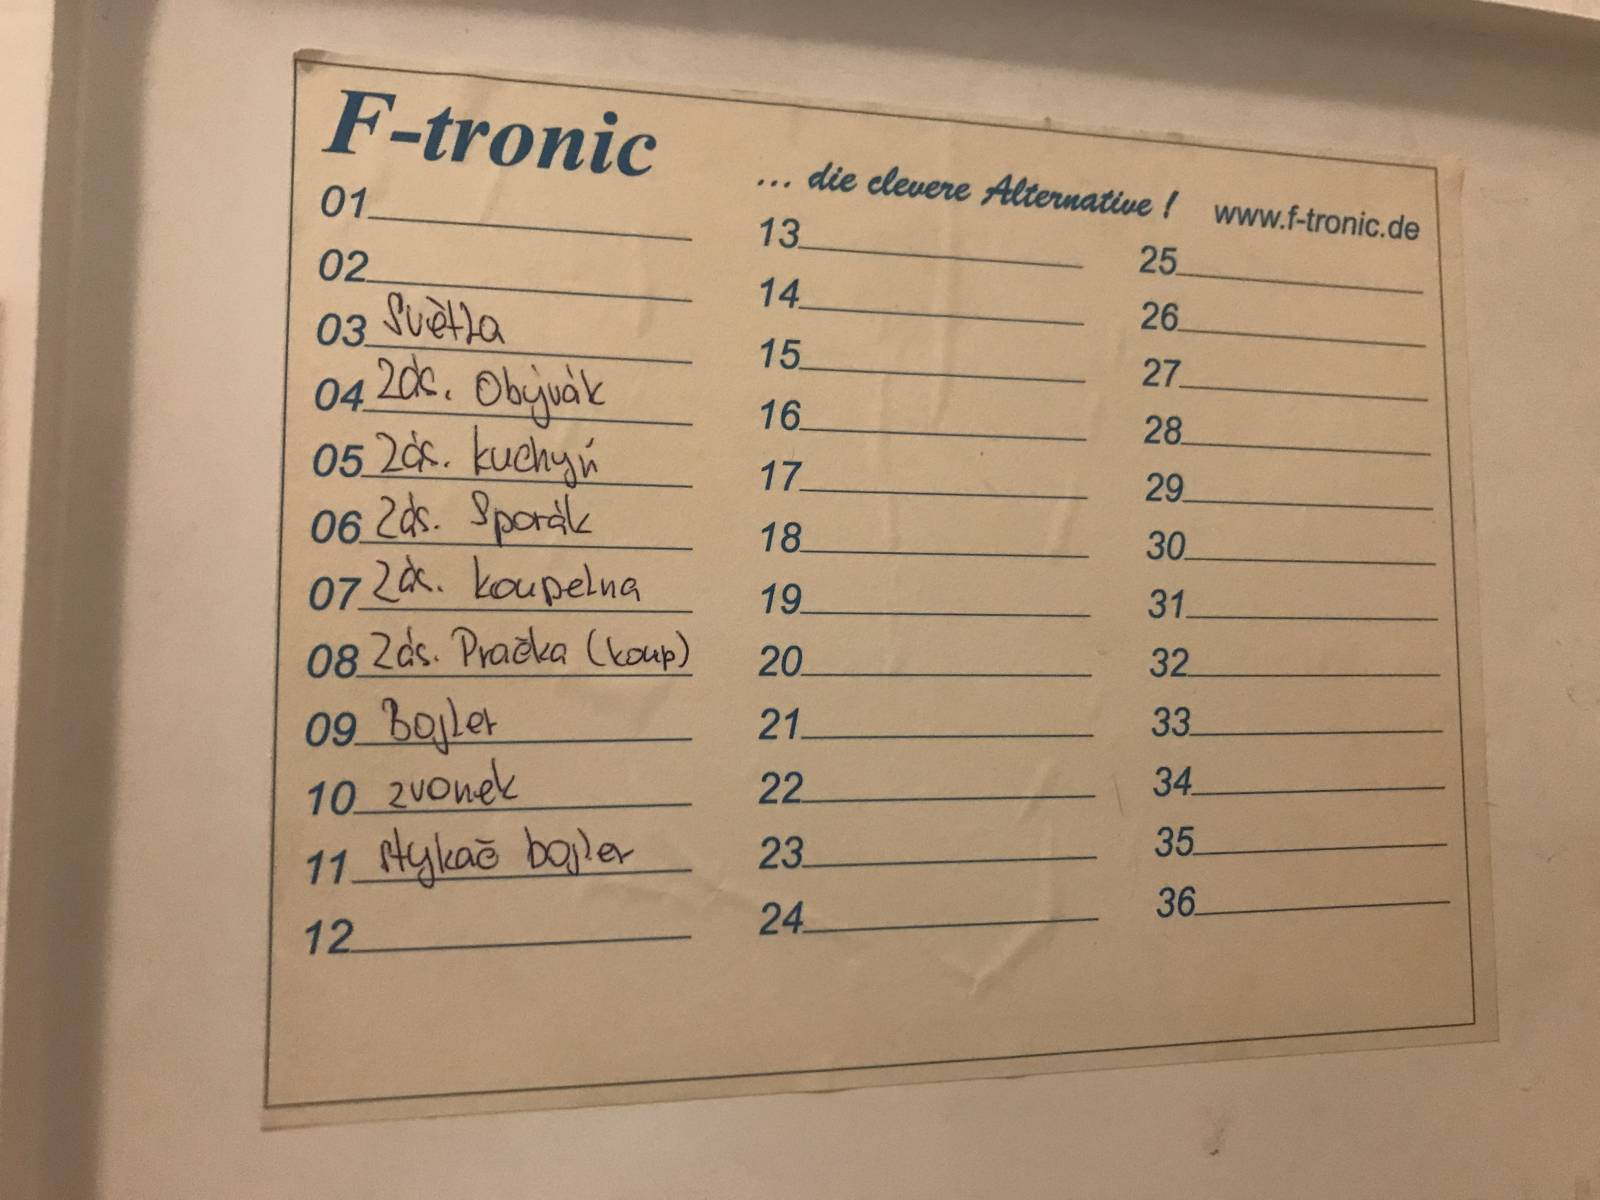 F-tronic
... die clevere Alternative ! www.f-tronic.de
01
02
03 Světla
04 Zás. Obývák
05 Zás. kuchyň
06 Zás. Sporák
07 Zás. koupelna
08 Zás. Pračka (koup)
09 Bojler
10 zvonek
11 stykač bojler
12
13
14
15
16
17
18
19
20
21
22
23
24
25
26
27
28
29
30
31
32
33
34
35
36